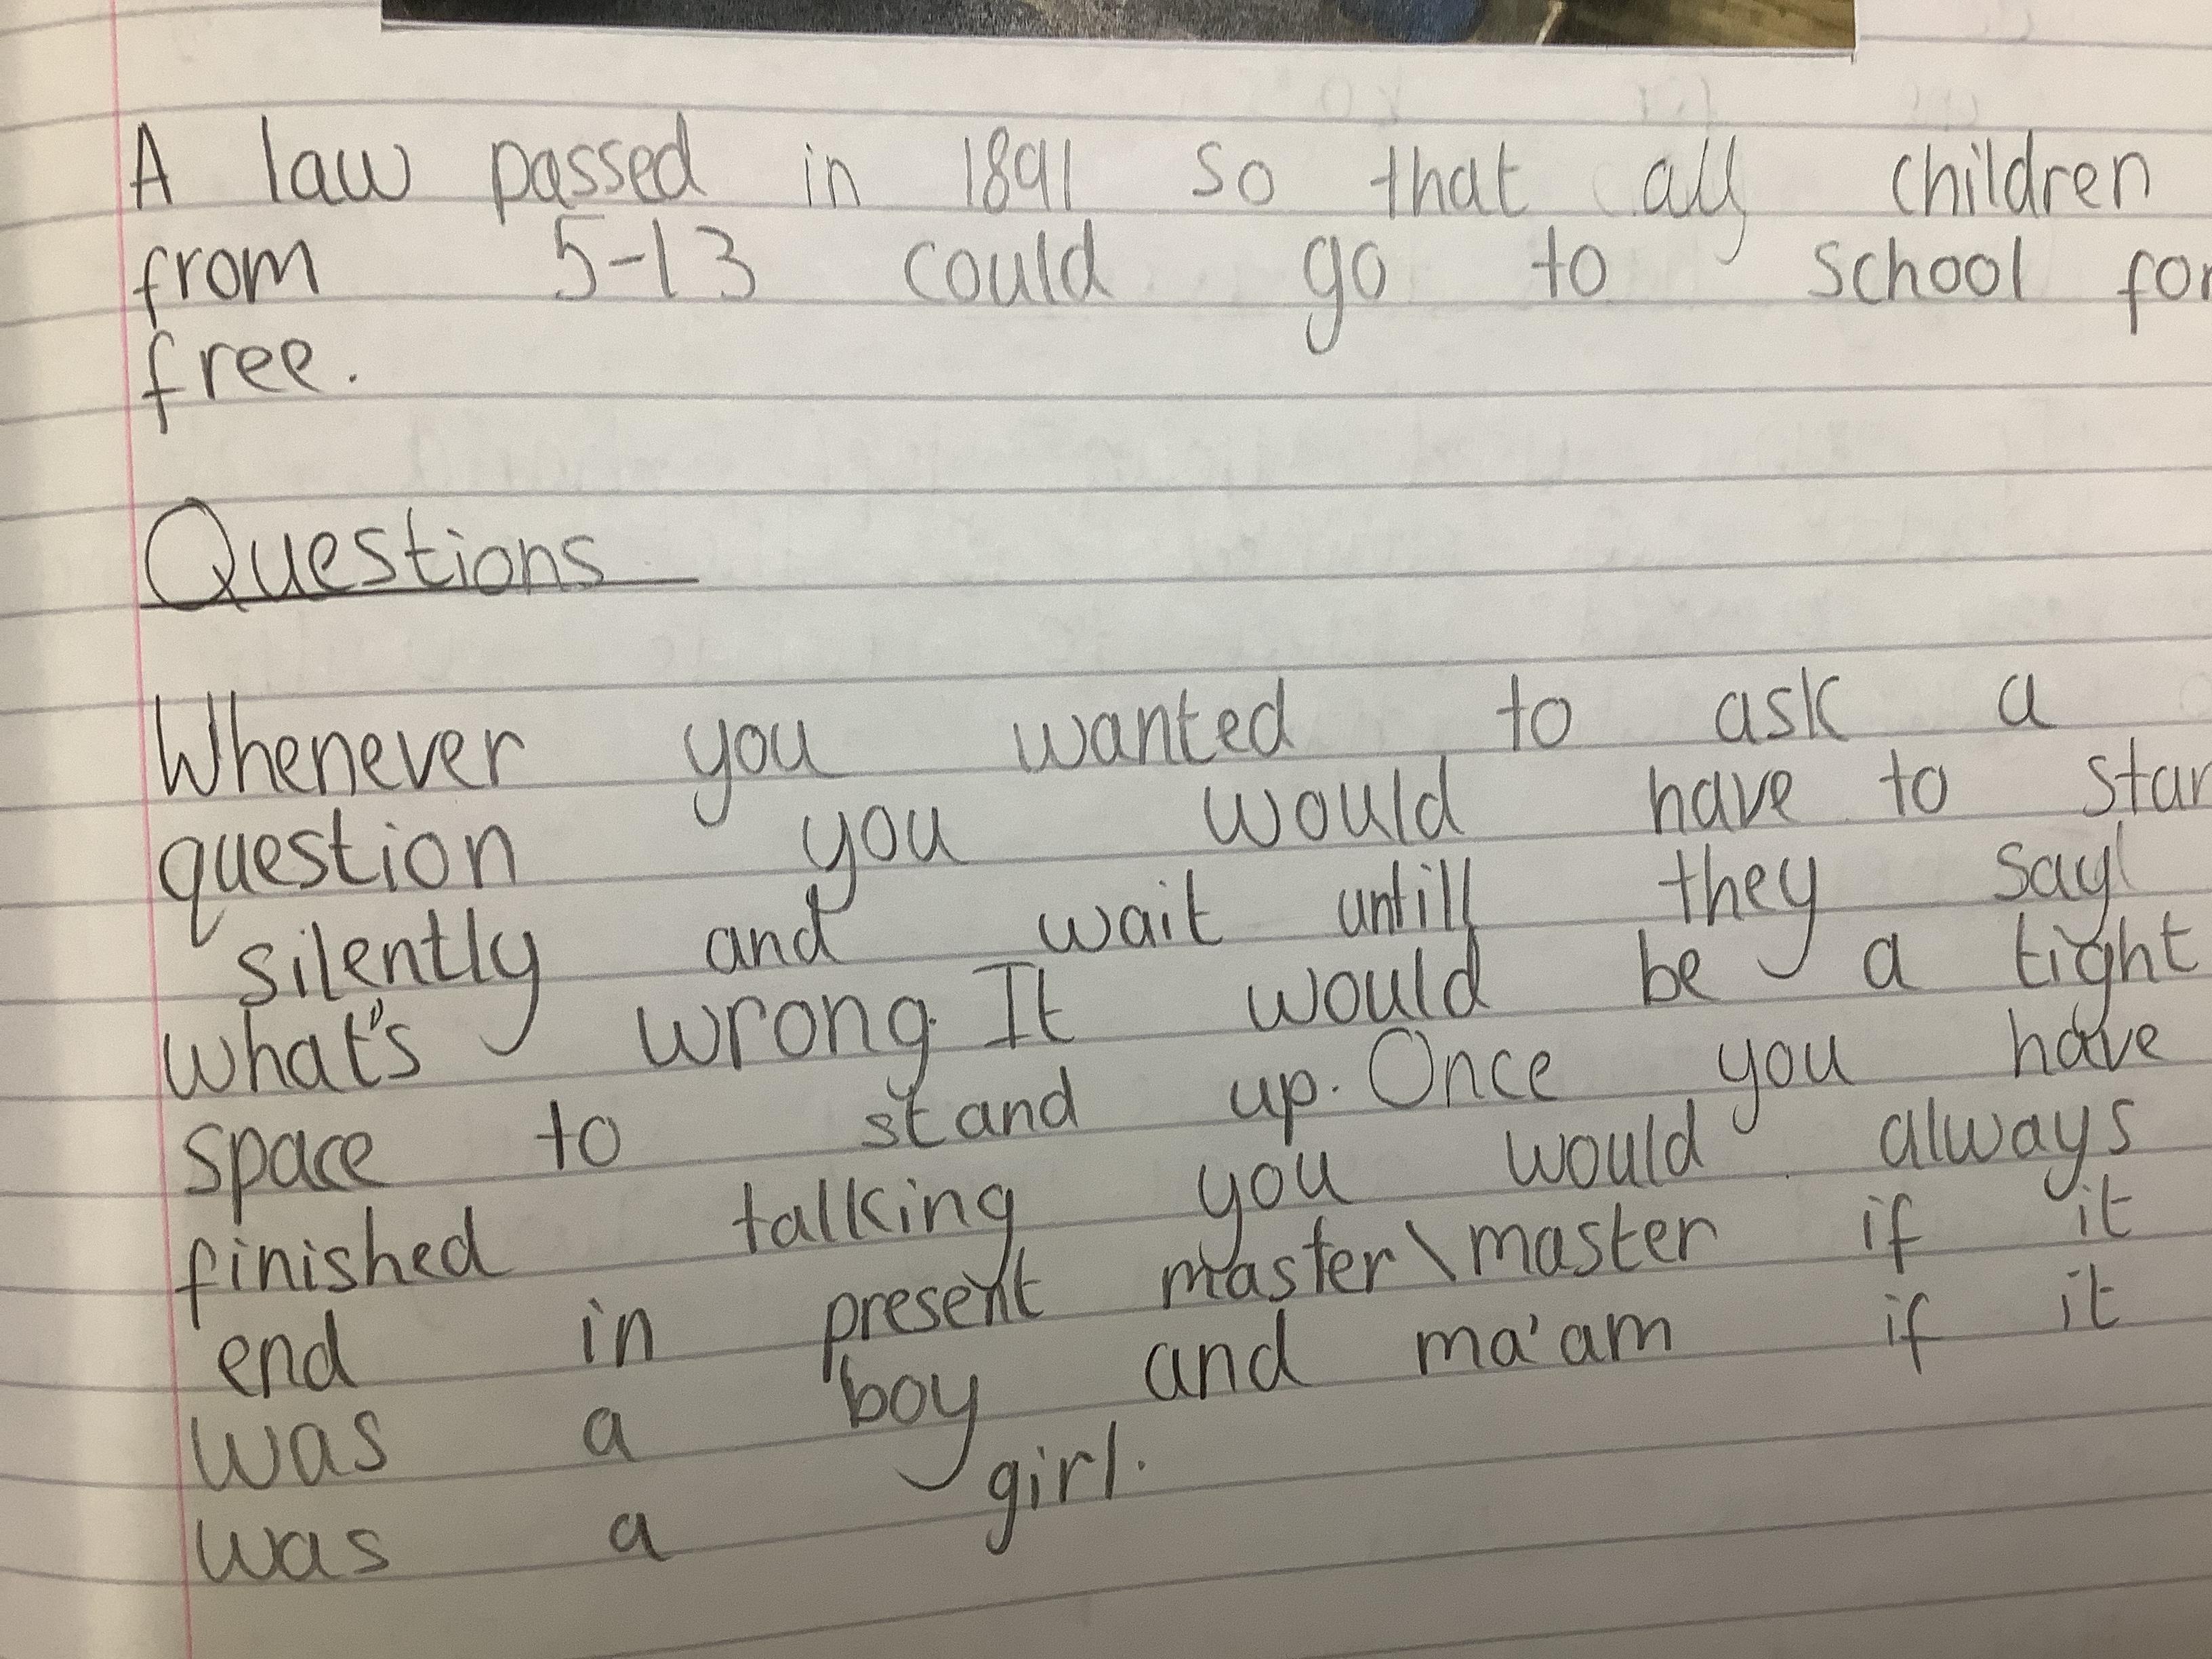 A law passed in 1891 so that all children
from 5-13 could go to school for
free.
Questions
Whenever you wanted to ask a
question you would have to
silently and wait untill they say
what's wrong. It would be a tight
space to stand up. Once you have
finished talking you would always
end in present master\master if it
was a boy and ma'am if it
was a girl.